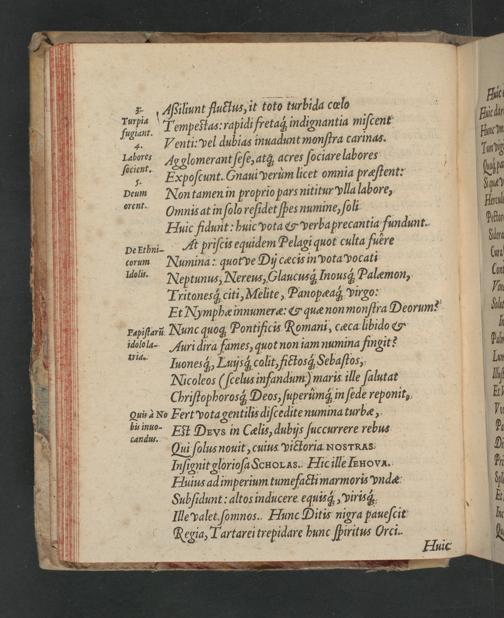 3.
Turpia
fugiant.
4.
Labores
socient.
5.
Deum
orent.
De Ethni-
corum
Idolis.
Papistarū
idolola-
tria.
Quis à No
bis inuo-
candus.
Aßiliunt fluctus, it toto turbida cœlo
Tempestas: rapidi fretaq́; indignantia miscent
Venti: vel dubias inuadunt monstra carinas.
Agglomerant sese, atq́; acres sociare labores
Exposcunt. Gnaui verùm licet omnia præstent:
Non tamen in proprio pars nititur vlla labore,
Omnis at in solo residet spes numine, soli
Huic fidunt: huic vota & verba precantia fundunt.
At priscis equidem Pelagi quot culta fuêre
Numina: quotve Dij cæcis in vota vocati
Neptunus, Nereus, Glaucusq́; Inousq́; Palæmon,
Tritonesq́; citi, Melite, Panopæaq́; virgo:
Et Nymphæ innumeræ: & quæ non monstra Deorum?
Nunc quoq́; Pontificis Romani, cæca libido &
Auri dira fames, quot non iam numina fingit?
Iuonesq́;, Luijsq́; colit, fictosq́; Sebastos,
Nicoleos (scelus infandum) maris ille salutat
Christophorosq́; Deos, superûmq́; in sede reponit,
Fert vota gentilis discedite numina turbæ,
Est DEVS in Cælis, dubijs succurrere rebus
Qui solus nouit, cuius victoria NOSTRAS
Insignit gloriosa SCHOLAS. Hic ille IEHOVA.
Huius ad imperium tumefacti marmoris vndæ
Subsidunt: altos inducere equisq́;, virisq́;
Ille valet somnos. Hunc Ditis nigra pauescit
Regia, Tartarei trepidare hunc spiritus Orci.
Huic